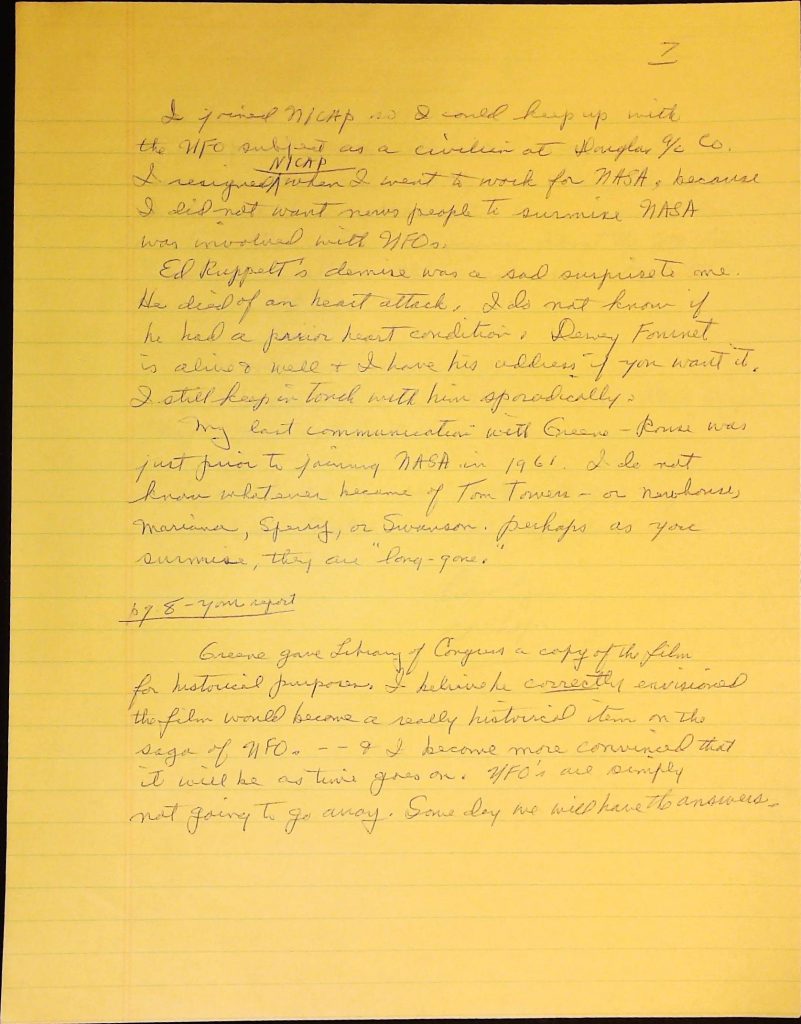 7
I joined NICAP so I could keep up with
the UFO subject as a civilian at Douglas A/c Co.
NICAP
I resigned when I went to work for NASA, because
I did not want news people to surmise NASA
was involved with UFOs.
Ed Ruppelt's demise was a sad surprise to me.
He died of an heart attack. I do not know if
he had a prior heart condition. Dewey Fournet
is alive & well & I have his address if you want it.
I still keep in touch with him sporadically.
My last communication with Greene-Rouse was
just prior to joining NASA in 1961. I do not
know whatever became of Tom Towers - or Newhouse,
Mariana, Sperry, or Swanson. Perhaps as you
surmise, they are "long-gone."
pg. 8 - your report
Greene gave Library of Congress a copy of the film
for historical purposes. I believe he correctly envisioned
the film would become a really historical item on the
saga of UFOs -- & I become more convinced that
it will be as time goes on. UFO's are simply
not going to go away. Some day we will have the answers.